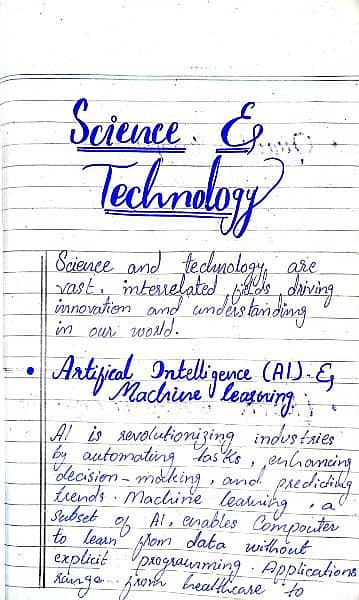 Science &
Technology
Science and technology are
vast, interrelated fields driving
innovation and understanding
in our world.
• Artifical Intelligence (AI) &
Machine learning.
AI is revolutionizing industries
by automating tasks, enhancing
decision-making, and predicting
trends. Machine learning, a
subset of AI, enables Computer
to learn from data without
explicit programming. Applications
range from healthcare to